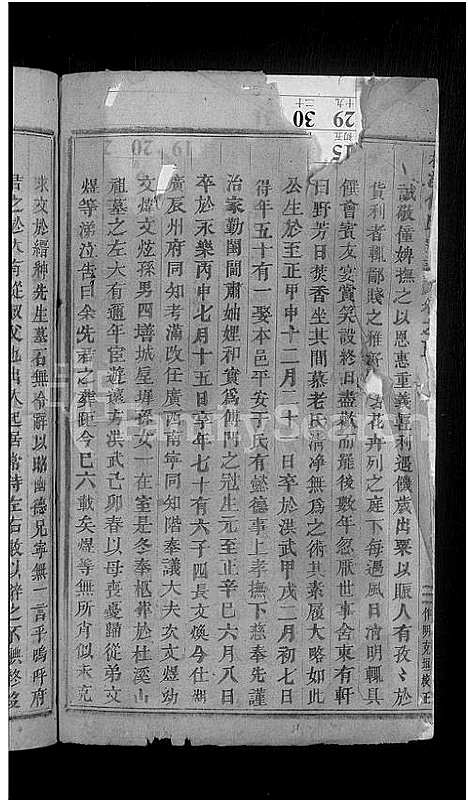 誠敬僮婢撫之以恩惠重義喜利遇儉歲出粟以賑人有孜〻於
貨利者輒鄙賤之雅 花卉列之庭下每遇風日清明輒具
饌會賓友宴賞笑談終日盡歡而罷後數年忽厭世事舍東有軒
曰野芳日焚香坐其間慕老氏清淨無為之術其素履大略如此
公生於至正甲申十二月二十 日卒於洪武甲戌二月初七日
得年五十有一娶本邑平安于氏有懿德事上孝撫下慈奉先謹
治家勤閨閫肅妯娌和實為傅門之冠生元至正辛巳六月八日
卒於永樂丙申七月十五日享年七十有六子四長文煥今仕湖
廣辰州府同知考滿改任廣西南寧同知階奉議大夫次文煜幼
文煒文炫孫男四墡城垕墀孫女一在室是冬奉柩葬於杜溪山
祖墓之左大有適年宦遊遠方洪武己卯春以母喪憂歸從弟文
煜等涕泣告曰余先君之葬距今已六載矣煜等無所肖似未克
求文於縉紳先生墓石無 辭以昭幽德兄寧無一言乎嗚呼府
君之於大有從叔父也出入起居常侍左右教以
29
30
15
十九
二十
初五
19
20